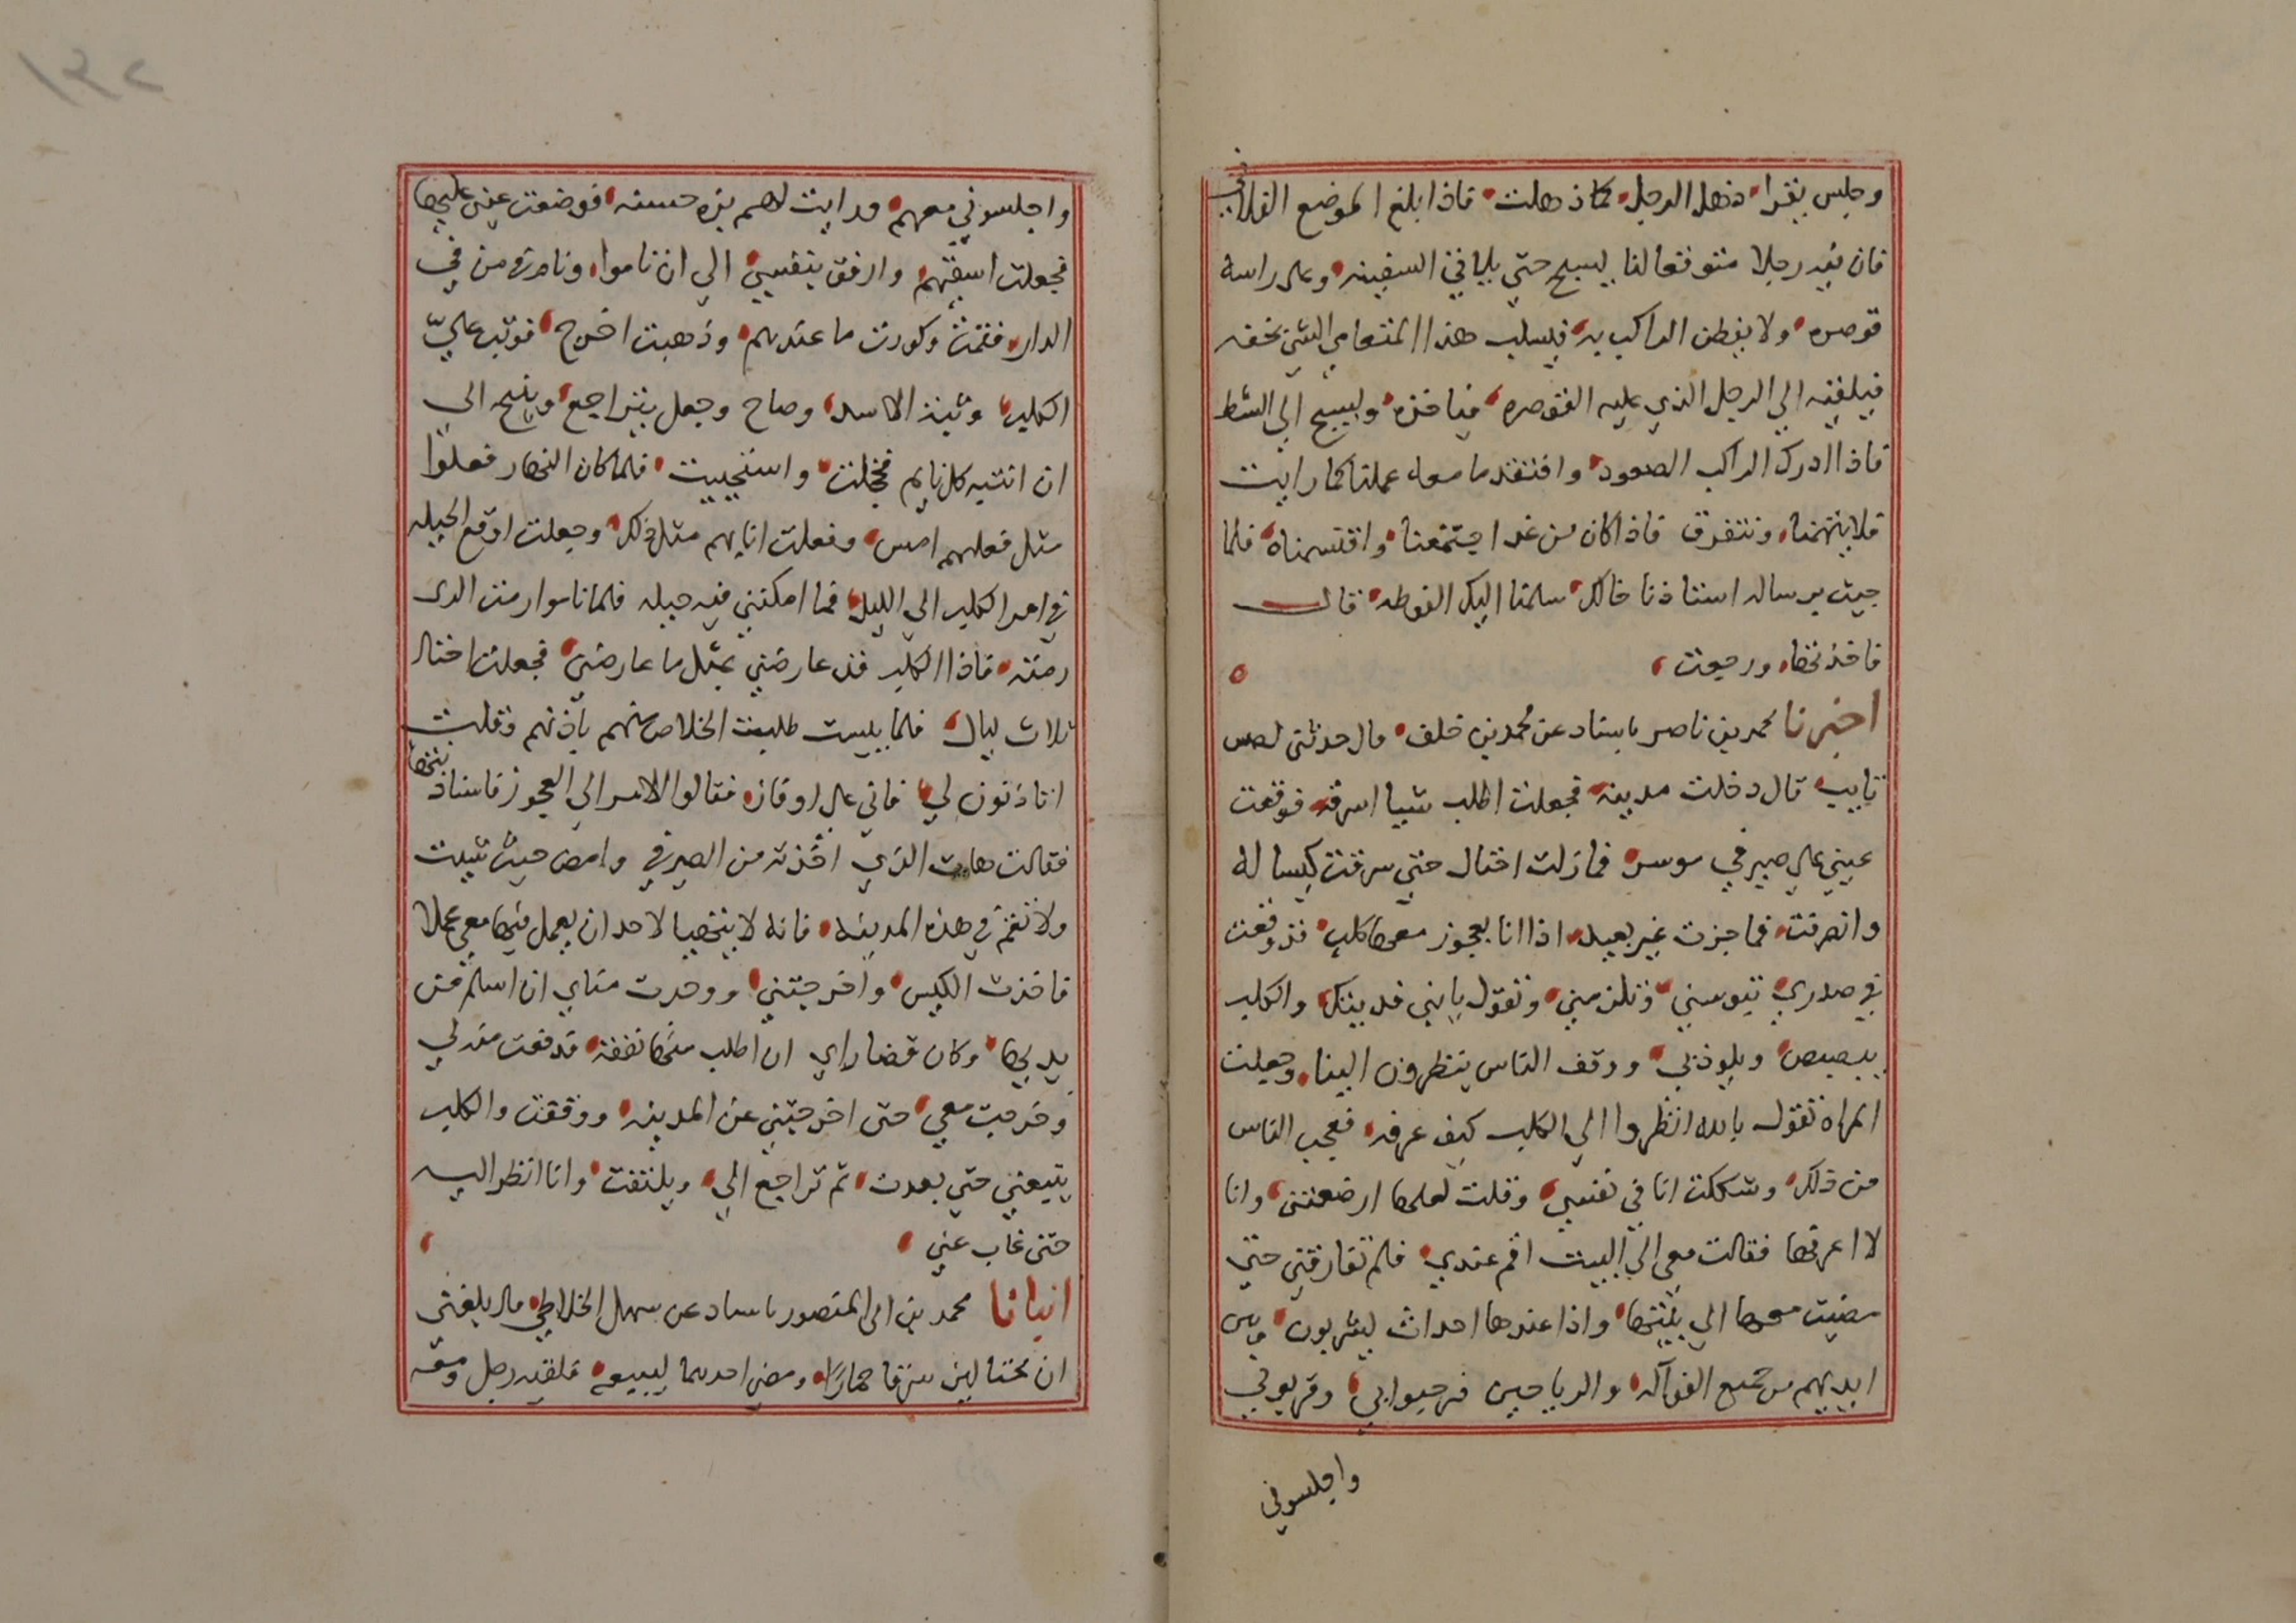 وجلس يقرا ذهل الرجل كما ذهلت فاذا بلغ الموضع الفلاني
فان فيه رجلا متوقعا لنا ليسبح حتي يلاقي السفينه وعلي راسه
قوصره ولا يفطن الراكب به فيسلب هذا المتعامي الشي بخفه
فيلقيه الي الرجل الذي عليه القوصره فياخذه ويسبح الي الشط
فاذا ادرك الراكب الصعود وافتقد ما معه عملنا كما رايت
فلا يتهمنا ونتفرق فاذا كان من غد اجتمعنا واقتسمناه فلما
جيت برساله استاذنا خالك سلمنا اليك الفوطه قال
فاخذتها ورجعت
اخبرنا محمد بن ناصر باسناد عن محمد بن خلف قال حدثني لص
تايب قال دخلت مدينه فجعلت اطلب شيا اسرقه فوقعت
عيني علي صيرفي موسر فما زلت احتال حتي سرقت كيسا له
وانصرفت فما جزت غير بعيد اذا انا بعجوز معها كلب قد وقعت
في صدري تبوسني وتلزمني وتقول يا بني فديتك والكلب
يبصبص ويلوذ بي ووقف الناس ينظرون الينا وجعلت
المراه تقول بالله انظروا الي الكلب كيف عرفه فعجب الناس
من ذلك وشككت انا في نفسي وقلت لعلها ارضعتني وانا
لا اعرفها فقالت معي الي البيت اقم عندي فلم تفارقني حتي
مضيت معها الي بيتها واذا عندها احداث يشربون وبين
ايديهم من جميع الفواكه والرياحين فرحبوا بي وقربوني
واجلسوني
واجلسوني معهم ورايت لهم بزه حسنه فوضعت عيني عليها
فجعلت اسقيهم وارفق بنفسي الي ان ناموا ونام كل من في
الدار فقمت وكورت ما عندهم وذهبت اخرج فوثب علي
الكلب وثبة الاسد وصاح وجعل يتراجع وينبح الي
ان انتبه كل نايم فخجلت واستحييت فلما كان النهار فعلوا
مثل فعلهم امس وفعلت انا بهم مثل ذلك وجعلت اوقع الحيله
في امر الكلب الي الليل فما امكنني فيه حيله فلما ناموا رمت الذي
رمته فاذا الكلب قد عارضني بمثل ما عارضني فجعلت احتال
ثلاث ليال فلما يبست طلبت الخلاص منهم باذنهم فقلت
اتاذنون لي فاني علي اوفاز فقالوا الامر الي العجوز فاستاذنتها
فقالت هات الذي اخذته من الصيرفي وامض حيث شيت
ولا تقم في هذه المدينه فانه لا يتهيا لاحد ان يعمل فيها معي عملا
فاخذت الكيس واخرجتني ووجدت مناي ان اسلم من
يديها وكان قصاراي ان اطلب منها نفقه فدفعت الي
وخرجت معي حتي اخرجتني عن المدينه ووقفت والكلب
يتبعني حتي بعدت ثم تراجع الي ويلتفت وانا انظر اليه
حتي غاب عني
انبانا محمد بن ابي المنصور باسناد عن سهل الخلاطي قال بلغني
ان محتالين سرقا حمارا ومضي احدهما ليبيعه فلقيه رجل ومعه